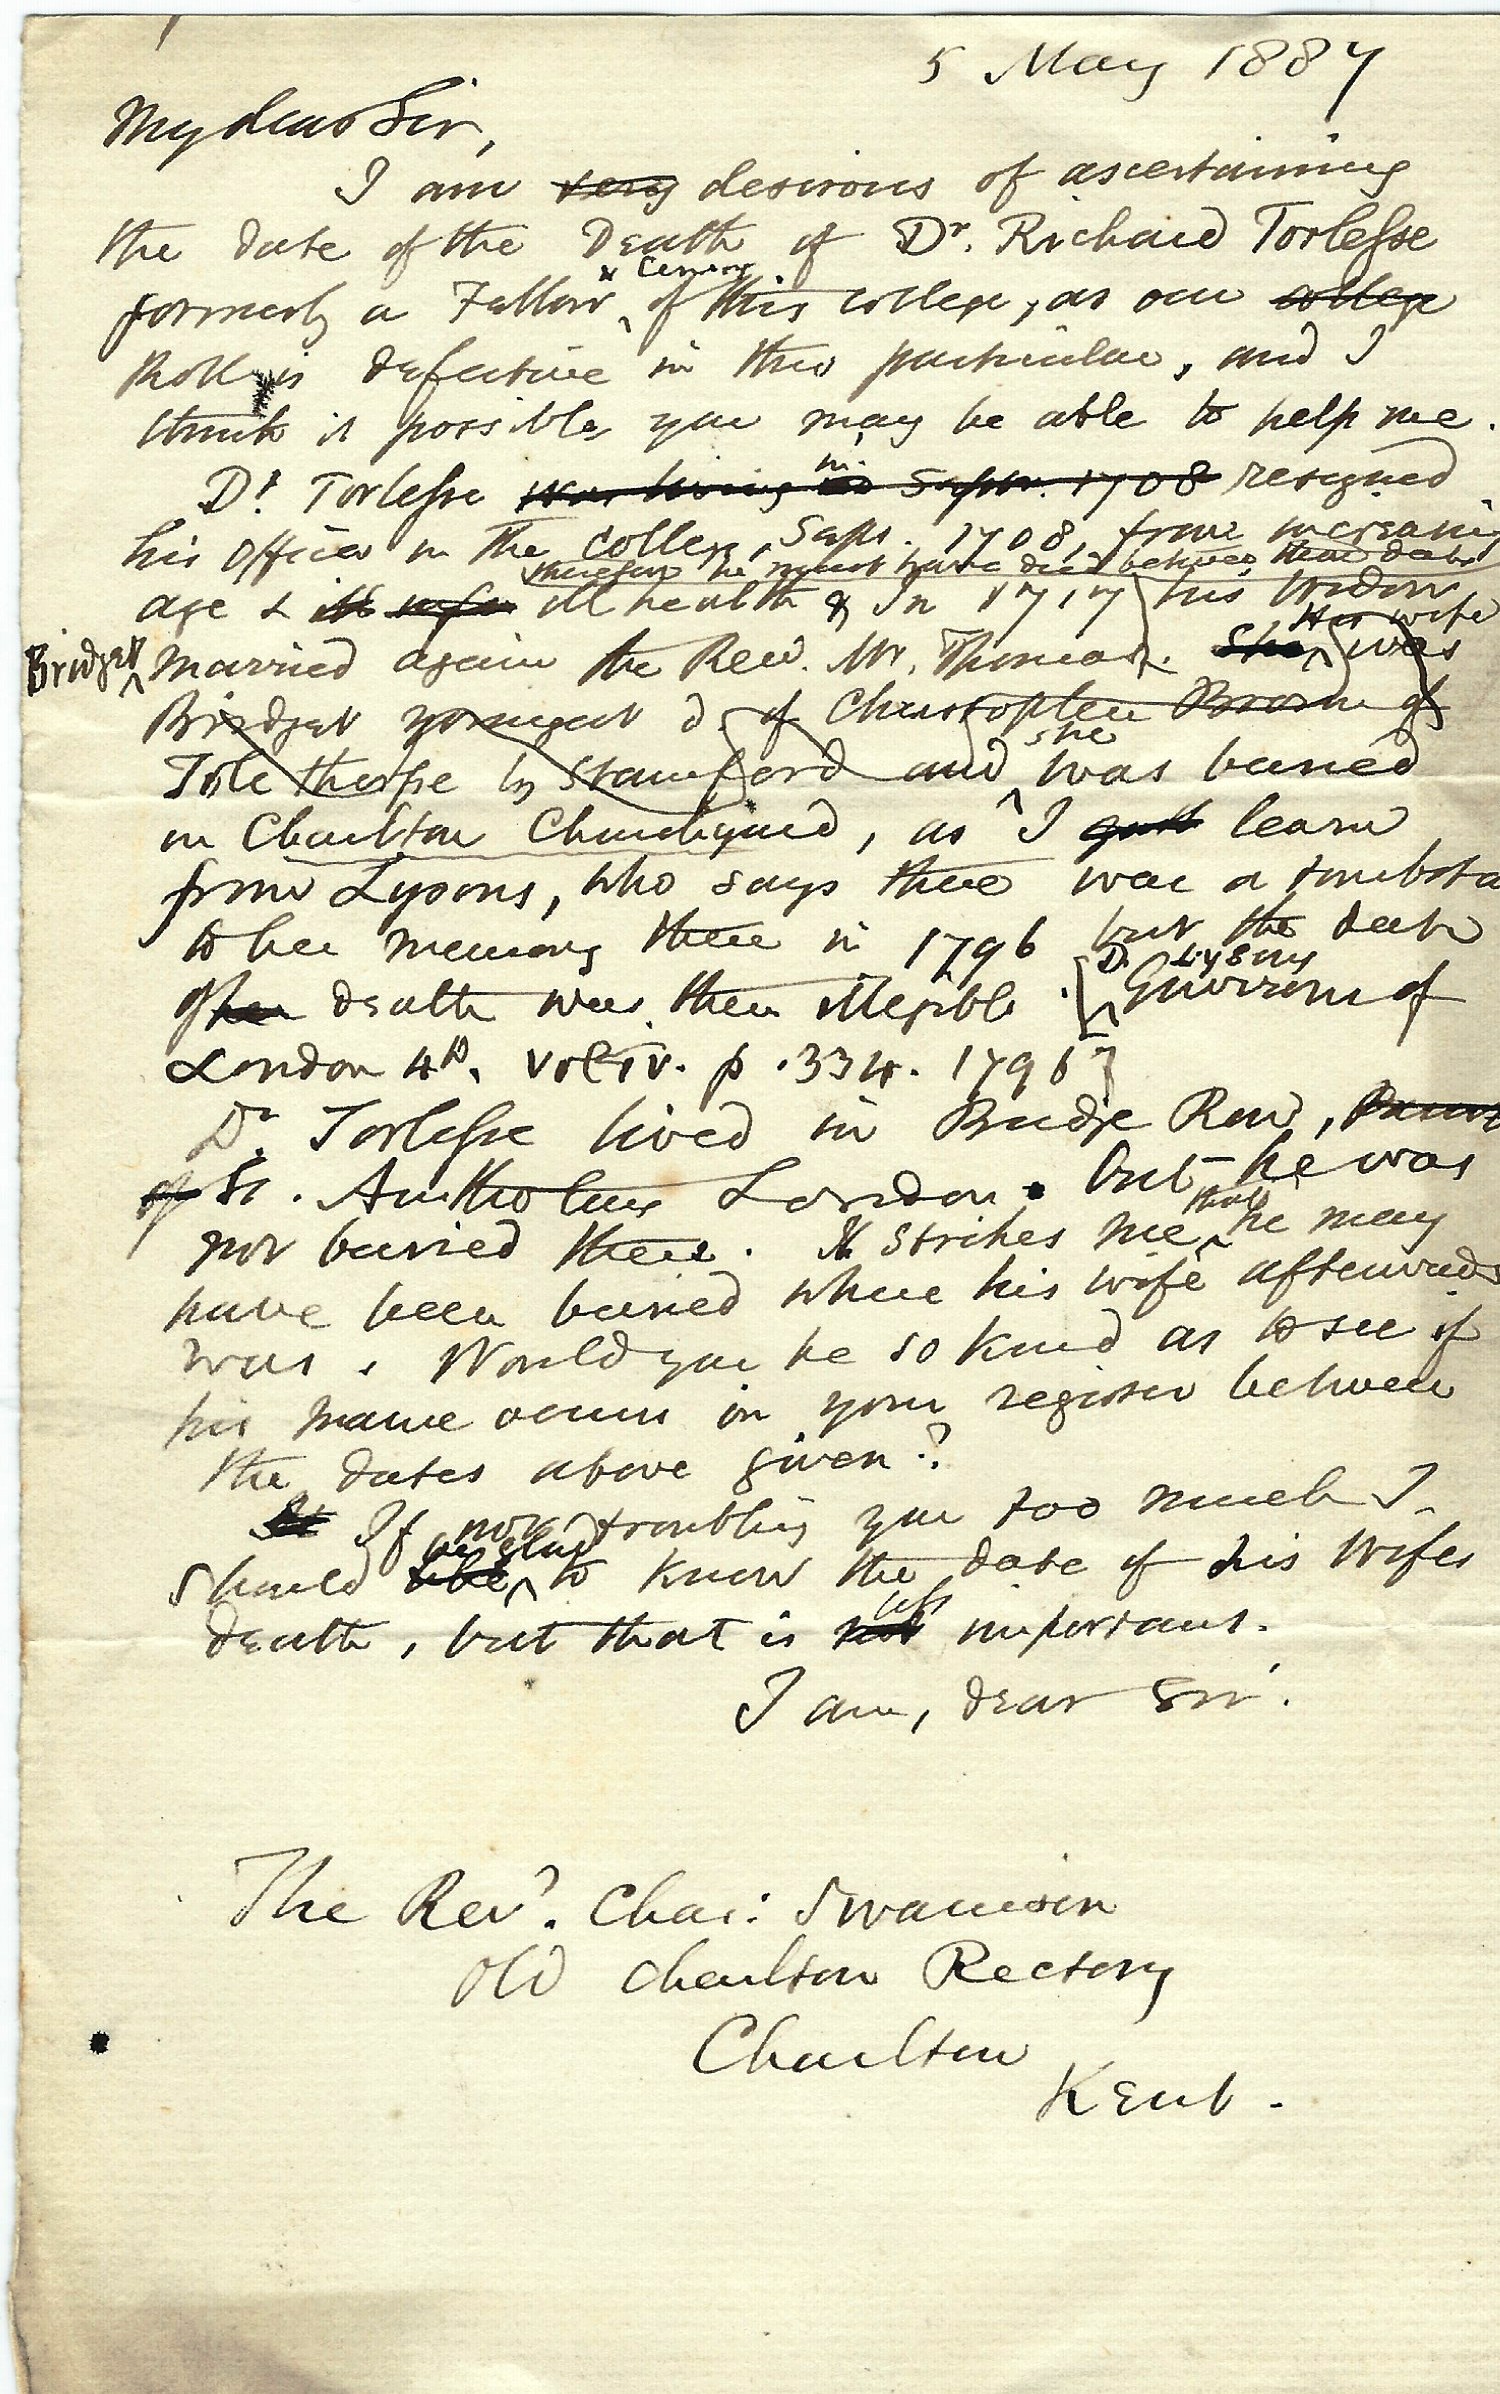 5 May 1887
My dear Sir,
I am very desirous of ascertaining
the date of the Death of Dr. Richard Torlesse
& Censor
formerly a Fellow of this college, as our college
Roll is defective in this particular, and I
think it possible you may be able to help me.
in
Dr Torlesse was living in Septr. 1708 resigned
his office in the College, Sept. 1708, from increasing
therefore he must have died between these dates
age & ill health & In 1717 his widow
Her wife
Bridget married again the Rev. Mr. Thomas. She was
Bridget youngest d. of Christopher Brown of
she
Tolethorpe by Stamford and was buried
in Charlton Churchyard, as I learn
from Lysons, who says there was a tombsto
to her memory there in 1796 but the date
D. Lysons
of her death was then illegible. [Environs of
London 4to. vol iv. p. 334. 1796]
Dr. Torlesse lived in Budge Row,
of St. Antholins London. but he was
that
not buried there. It strikes me he may
have been buried where his wife afterwards
was. Would you be so kind as to see if
his name occurs in your register between
the dates above given?
not
If troubling you too much I
be glad
should like to know the date of his wifes
less
death, but that is not important.
I am, dear Sir.
The Revd. Chas: Swainson
Old Charlton Rectory
Charlton
Kent.